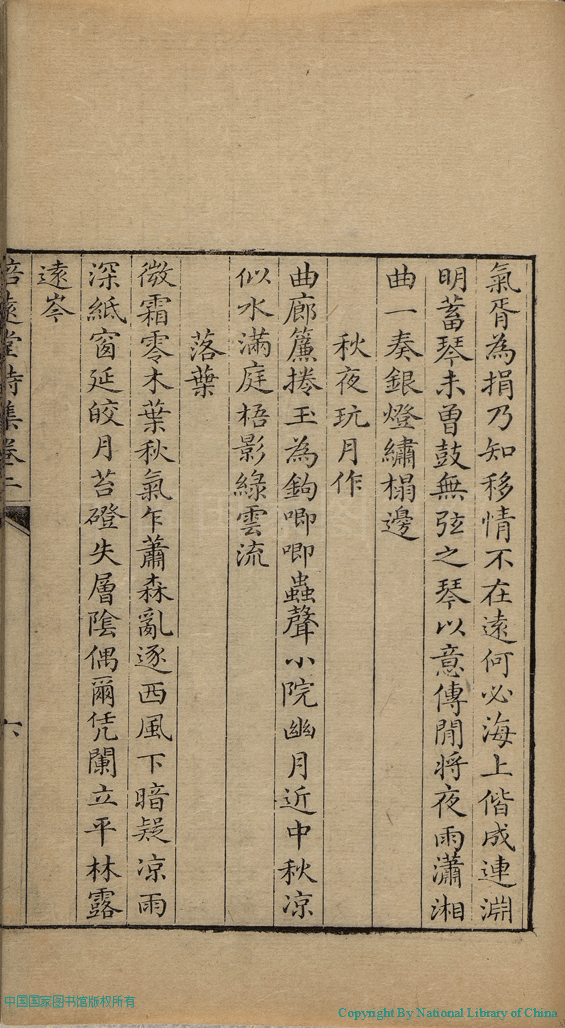 氣胥為捐乃知移情不在遠何必海上偕成連淵
明蓄琴未曾鼓無弦之琴以意傳閒將夜雨瀟湘
曲一奏銀燈繡榻邊
秋夜玩月作
曲廊簾捲玉為鉤唧唧蟲聲小院幽月近中秋凉
似水滿庭梧影綠雲流
落葉
微霜零木葉秋氣乍蕭森亂逐西風下暗疑凉雨
深紙窗延皎月苔磴失層陰偶爾凭闌立平林露
遠岑
培遠堂詩集卷二
六
中国国家图书馆版权所有
Copyright By National Library of China